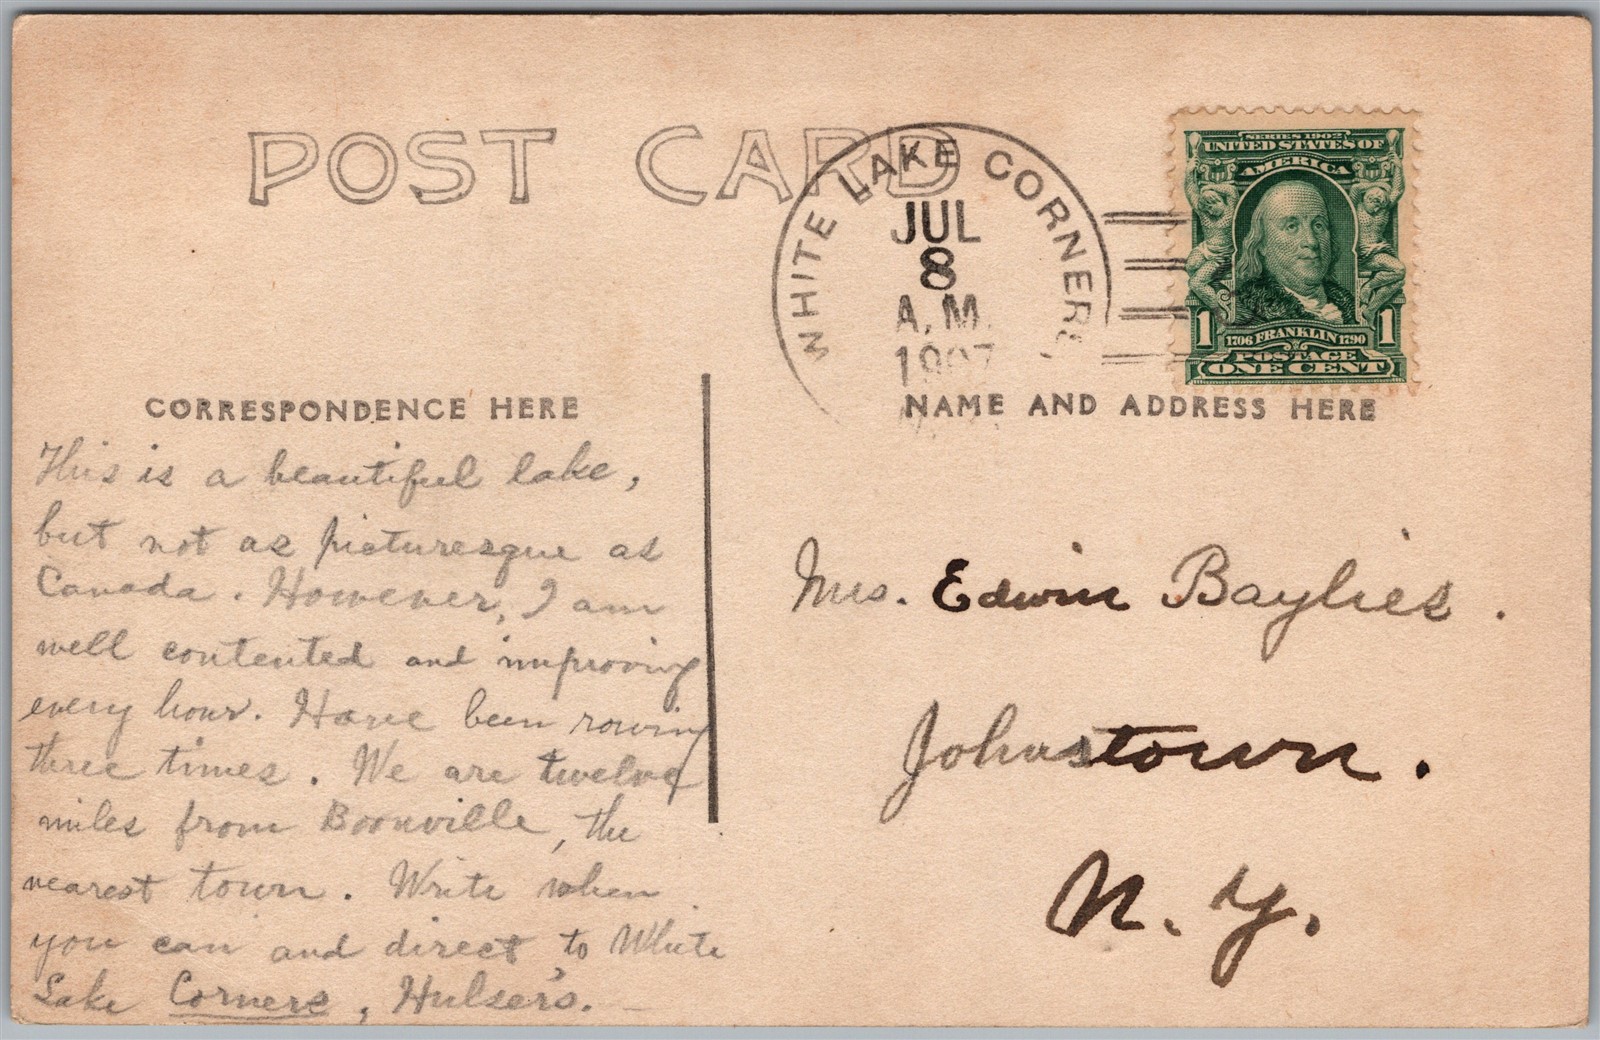 POST CARD
WHITE LAKE CORNERS
JUL
8
A.M.
1907
SERIES 1902
UNITED STATES OF
AMERICA
1 1
1706 FRANKLIN 1790
POSTAGE
ONE CENT
CORRESPONDENCE HERE
NAME AND ADDRESS HERE
This is a beautiful lake,
but not as picturesque as
Canada. However, I am
well contented and improving
every hour. Have been rowing
three times. We are twelve
miles from Boonville, the
nearest town. Write when
you can and direct to White
Lake Corners, Hulser's.
Mrs. Edwin Baylies.
Johnstown.
N.Y.